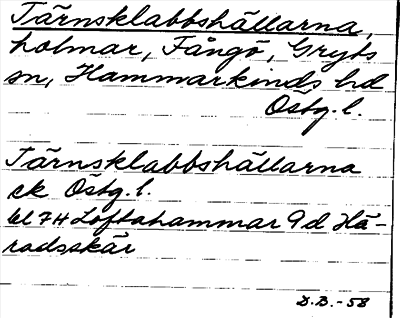 Tärnsklabbshällarna,
holmar, Fångö, Gryts
sn, Hammarkinds hd
Östg.l.
Tärnsklabbshällarna
ek Östg.l.
bl 74 Loftahammar 9d Hä-
radsskär
D.B.-58